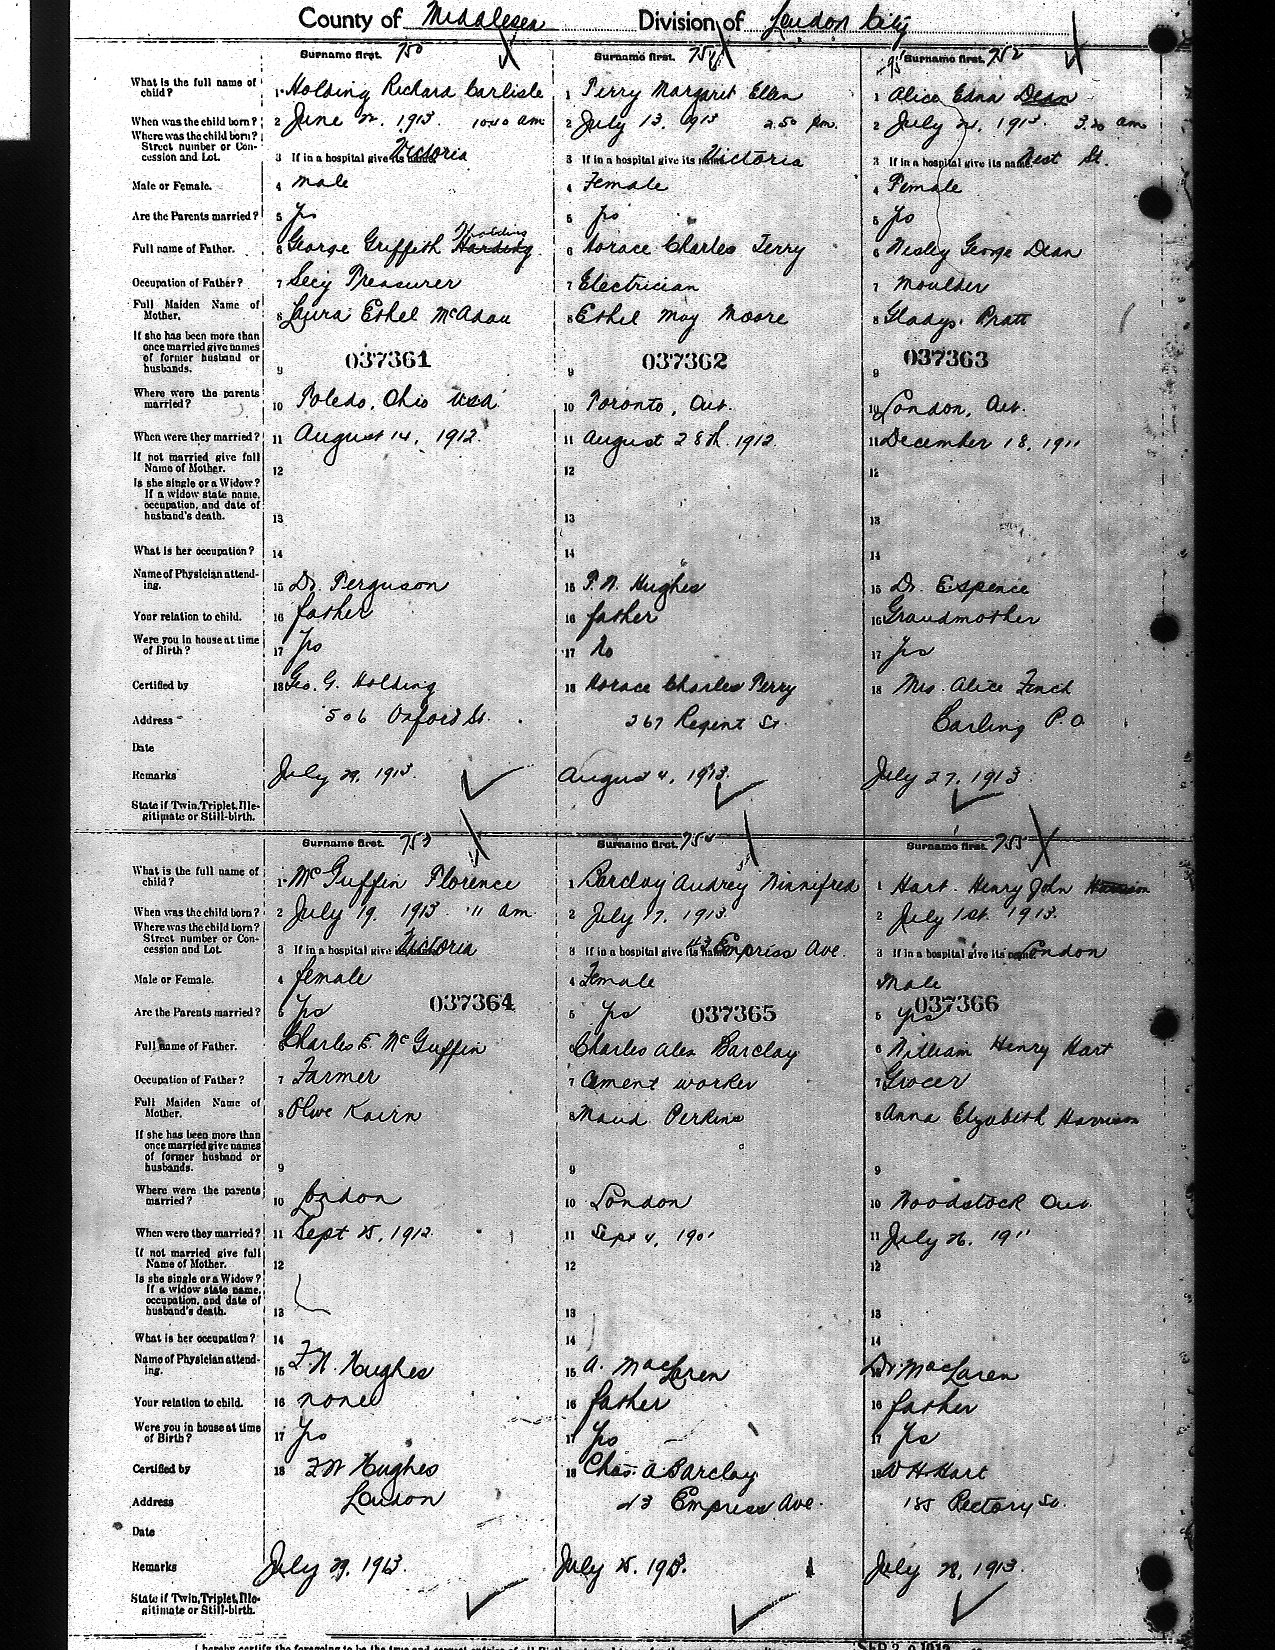 County of Middlesex Division of London City
Surname first. 750 Surname first. 751 Surname first. 752
What is the full name of child? 1 Holding Richard Carlisle 1 Terry Margaret Ellen 1 Alice Edna Dean
When was the child born? 2 June 1913. 10.40 am 2 July 13, 1913 2.50 pm. 2 July 1913. 3.20 am
Where was the child born? Street number or Concession and Lot. 3 If in a hospital give its name. Victoria 3 If in a hospital give its name Victoria 3 If in a hospital give its name. West St.
Male or Female. 4 male 4 Female 4 Female
Are the Parents married? 5 Yes 5 Yes 5 Yes
Full name of Father. 6 George Griffith Harding Holding 6 Horace Charles Terry 6 Wesley George Dean
Occupation of Father? 7 Secy Treasurer 7 Electrician 7 Moulder
Full Maiden Name of Mother. 8 Laura Ethel McAdam 8 Ethel May Moore 8 Gladys Pratt
If she has been more than once married give names of former husband or husbands. 9 037361 9 037362 9 037363
Where were the parents married? 10 Toledo, Ohio USA 10 Toronto, Ont. 10 London, Ont.
When were they married? 11 August 14, 1912. 11 August 28th 1912. 11 December 18, 1911
If not married give full Name of Mother. 12 12 12
Is she single or a Widow? If a widow state name, occupation, and date of husband's death. 13 13 13
What is her occupation? 14 14 14
Name of Physician attending. 15 Dr. Ferguson 15 F. W. Hughes 15 Dr. Espence
Your relation to child. 16 father 16 father 16 Grandmother
Were you in house at time of Birth? 17 Yes 17 No 17 Yes
Certified by 18 Geo. G. Holding 18 Horace Charles Terry 18 Mrs. Alice Finch
Address 506 Oxford St. 267 Regent St. Carling P.O
Date
Remarks July 29, 1913. August 4, 1913. July 27, 1913
State if Twin, Triplet, Illegitimate or Still-birth.
Surname first. 753 Surname first. 754 Surname first. 755
What is the full name of child? 1 McGuffin Florence 1 Barclay Audrey Winnifred 1 Hart. Henry John Harrison
When was the child born? 2 July 19, 1913 11 am. 2 July 17, 1913. 2 July 1st. 1913.
Where was the child born? Street number or Concession and Lot. 3 If in a hospital give its name. Victoria 3 If in a hospital give its name 43 Empress Ave. 3 If in a hospital give its name London
Male or Female. 4 female 4 Female Male
Are the Parents married? 5 Yes 037364 5 Yes 037365 5 yes 037366
Full name of Father. 6 Charles E. McGuffin 6 Charles Alex Barclay 6 William Henry Hart
Occupation of Father? 7 Farmer 7 Cement worker 7 Grocer
Full Maiden Name of Mother. 8 Olive Kairn 8 Maud Perkins 8 Anna Elizabeth Harrison
If she has been more than once married give names of former husband or husbands. 9 9 9
Where were the parents married? 10 London 10 London 10 Woodstock Ont.
When were they married? 11 Sept 25, 1912. 11 Sept 4, 1901 11 July 26, 1911
If not married give full Name of Mother. 12 12 12
Is she single or a Widow? If a widow state name, occupation, and date of husband's death. 13 13 13
What is her occupation? 14 14 14
Name of Physician attending. 15 F. W. Hughes 15 A. MacLaren Dr. MacLaren
Your relation to child. 16 none 16 father 16 father
Were you in house at time of Birth? 17 Yes 17 Yes 17 Yes
Certified by 18 F W Hughes 18 Chas. A Barclay 18 W H. Hart
Address London 43 Empress Ave. 185 Rectory St.
Date
Remarks July 29, 1913. July 25, 1913. July 28, 1913.
State if Twin, Triplet, Illegitimate or Still-birth.